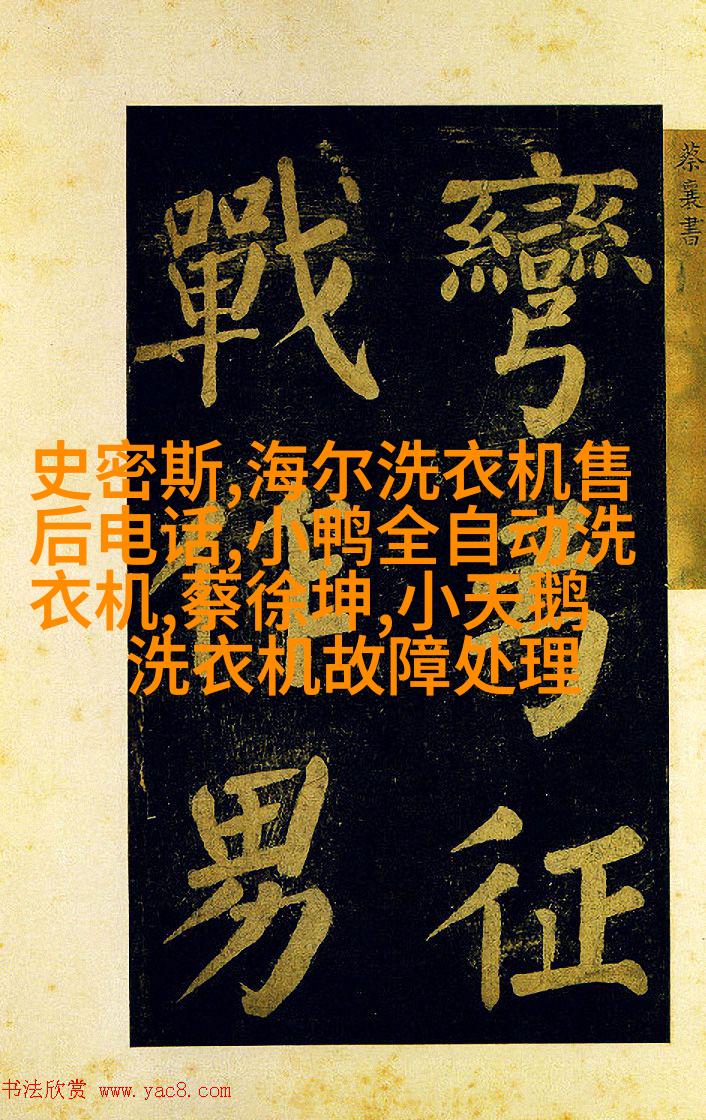 蔡襄書
彎弓征
戰作男
史密斯,海尔洗衣机售
后电话,小鸭全自动洗
衣机,蔡徐坤,小天鹅
洗衣机故障处理
书法欣赏 www.yac8.com